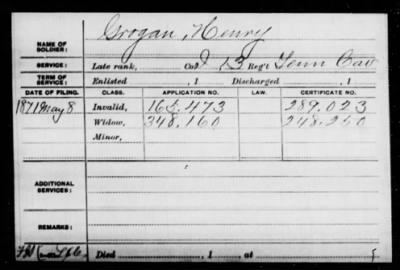 NAME OF SOLDIER: Grogan, Henry
SERVICE: Late rank, Co. I 13 Reg't Tenn Cav
TERM OF SERVICE: Enlisted , 1 Discharged , 1
DATE OF FILING. CLASS. APPLICATION NO. LAW. CERTIFICATE NO.
1871 May 8 Invalid, 165.473 289.023
Widow, 348.160 248.250
Minor,
ADDITIONAL SERVICES:
REMARKS:
Died , 1 , at